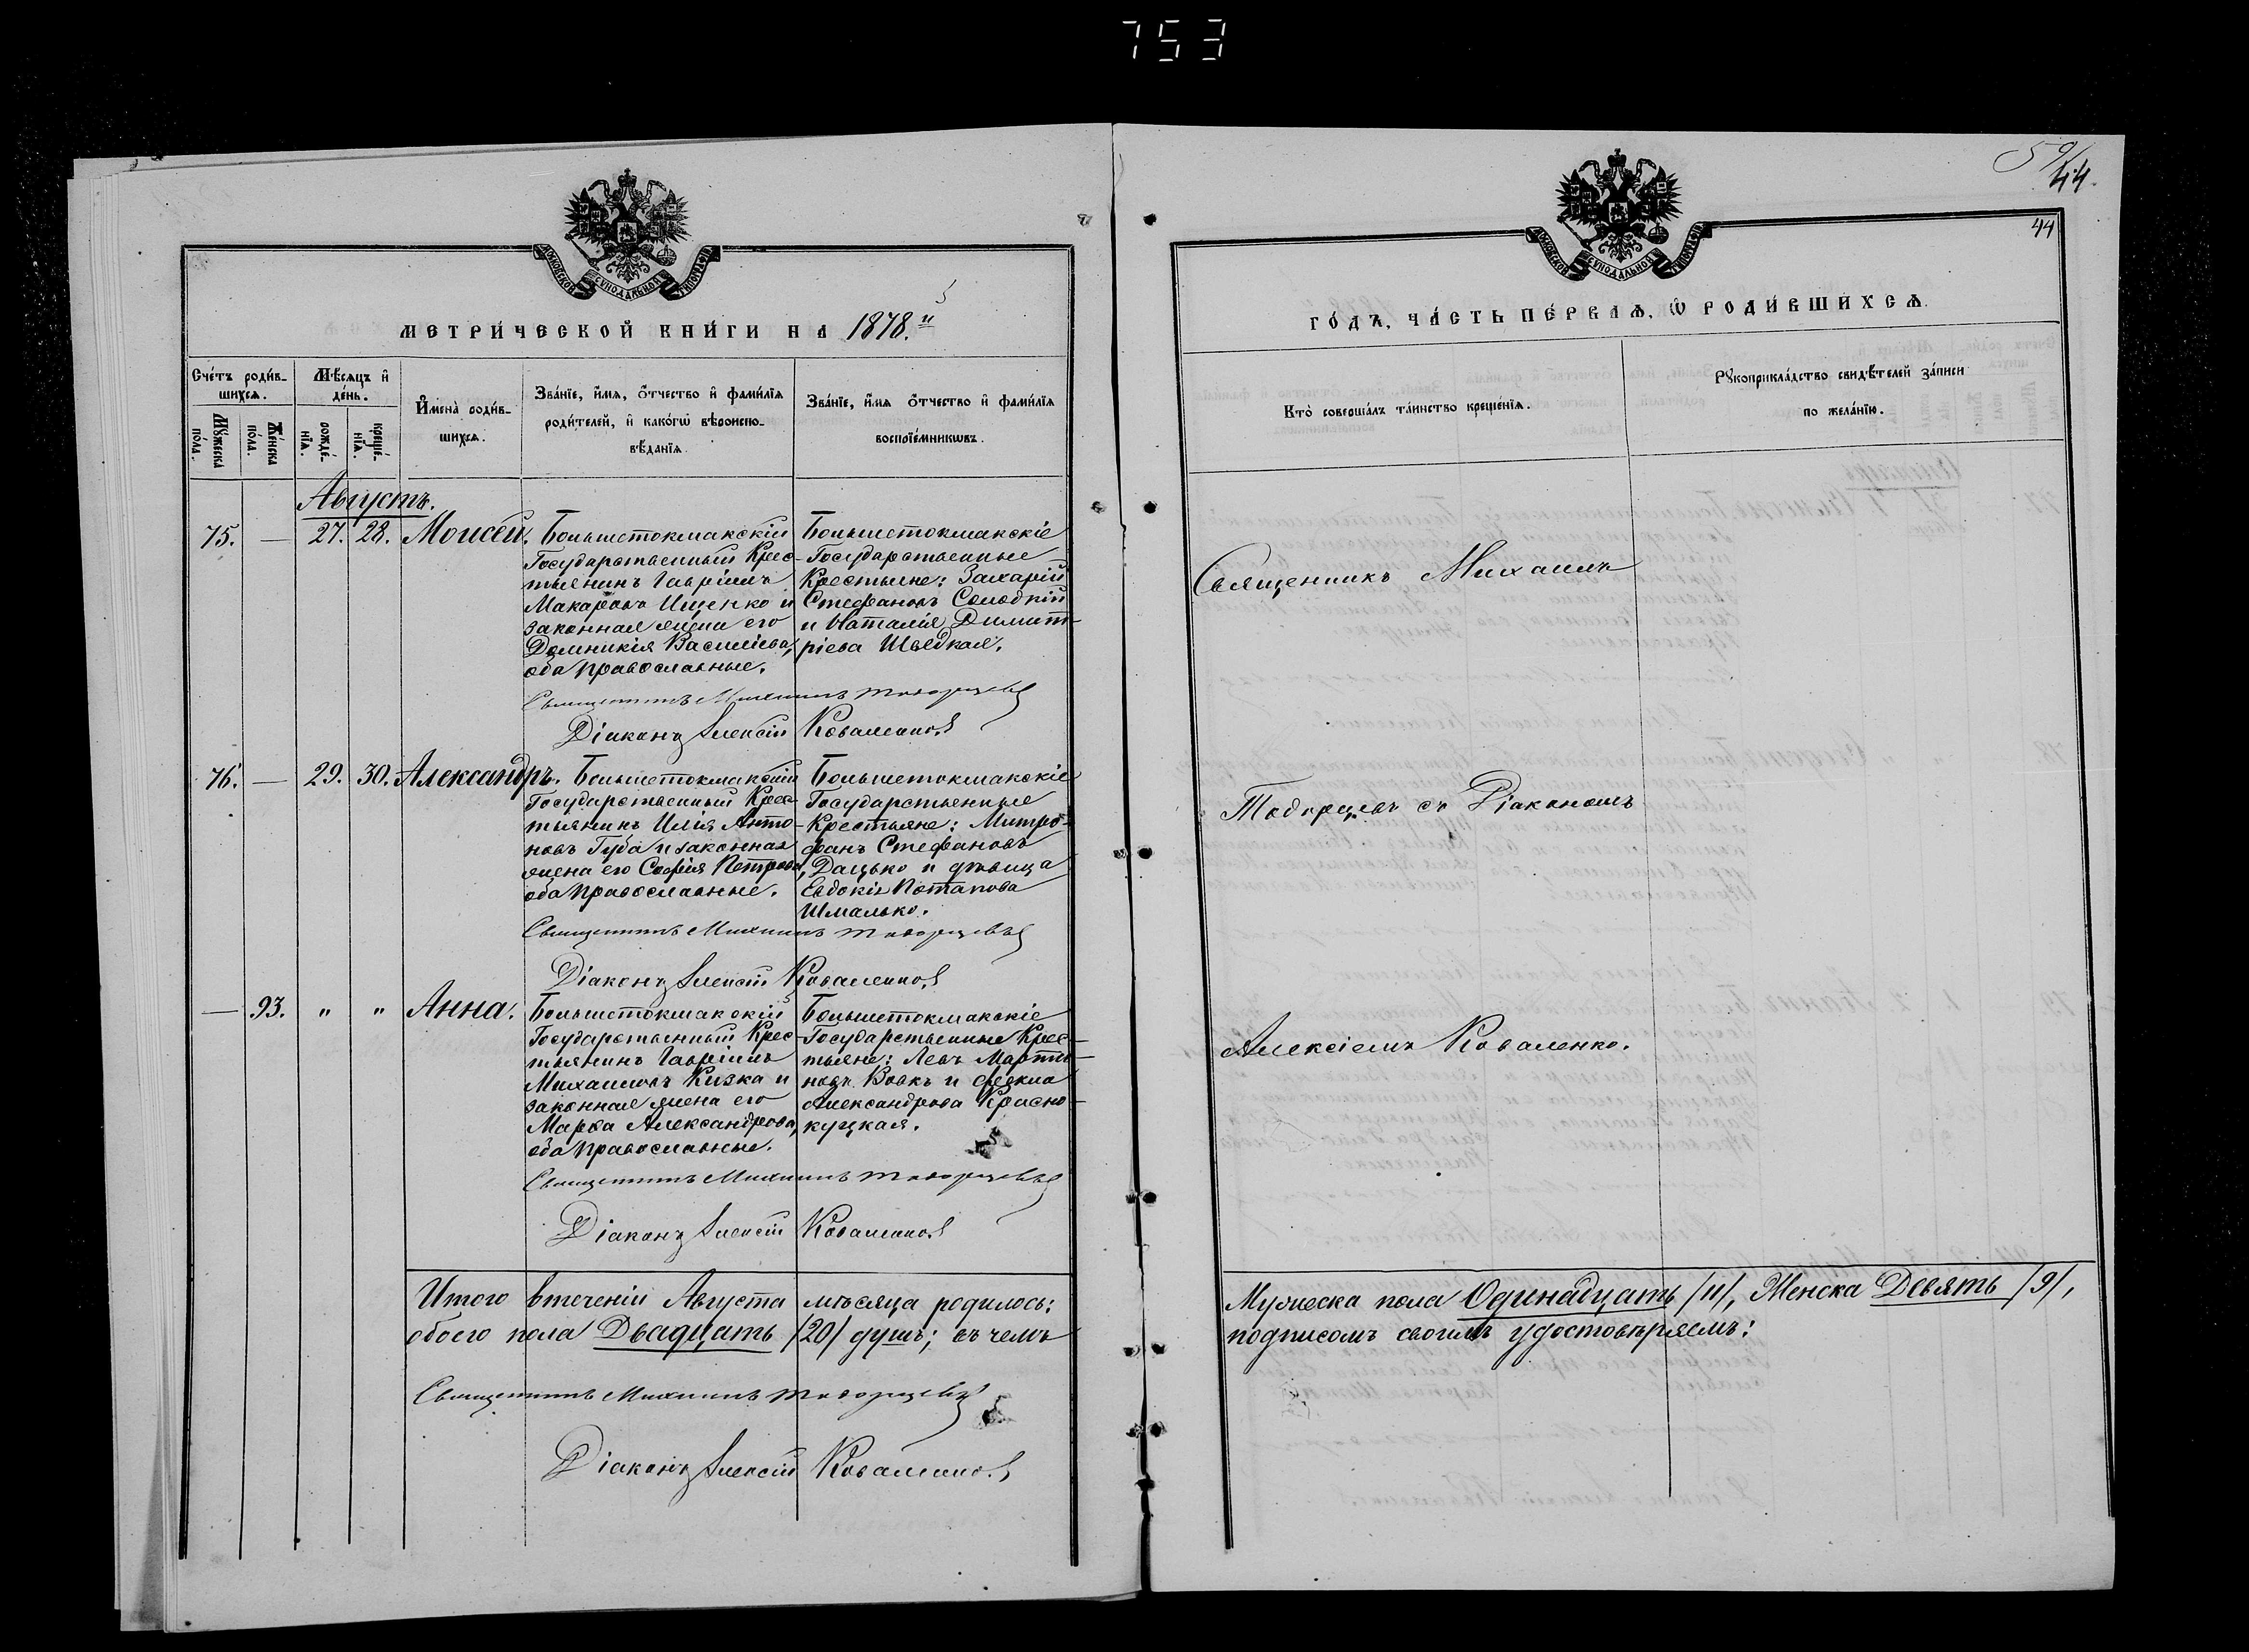 753
МОСКОВСКОЙ СѴНОДАЛЬНОЙ ТИПОГРАФІИ
МЕТРИ́ЧЕСКОЙ КНИ́ГИ НА 1878.й
Сче́тъ роди́в-
шихсѧ.
Мꙋ́жеска
по́ла.
Же́нска
по́ла.
Мѣ́сѧцъ и҆
де́нь.
рожде́-
нїѧ.
креще́-
нїѧ.
И҆мена̀ роди́в-
шихсѧ.
Зва́нїе, и҆́мѧ, ѻ҆́тчество и҆ фами́лїѧ
роди́телей, и҆ како́гѡ вѣроиспо-
вѣ́данїѧ.
Зва́нїе, и҆́мѧ ѻ҆́тчество и҆ фами́лїѧ
воспрїе́мникѡвъ.
Августъ.
75. — 27. 28. Моисей.
Большетокмакскій
Государственный Крес-
тьянинъ Гавріилъ
Макаровъ Ищенко и
законная жена его
Домникія Василіева,
оба православные.
Большетокмакскіе
Государственные
Крестьяне: Захарій
Стефановъ Солодкій
и Наталія Димит-
ріева Шведкая.
Священникъ Михаилъ Тодорцевъ
Діаконъ Алексій Коваленко
76. — 29. 30. Александръ.
Большетокмакскій
Государственный Крес-
тьянинъ Илія Анто-
новъ Губа и законная
жена его Софія Петрова,
оба православные.
Большетокмакскіе
Государственные
Крестьяне: Митро-
фанъ Стефановъ
Дацько и дѣвица
Евдокія Потапова
Шмалько.
Священникъ Михаилъ Тодорцевъ
Діаконъ Алексій Коваленко
— 93. " " Анна.
Большетокмакскій
Государственный Крес-
тьянинъ Гавріилъ
Михаиловъ Кизка и
законная жена его
Марѳа Александрова,
оба православные.
Большетокмакскіе
Государственные Крес-
тьяне: Левъ Марти-
новъ Вовкъ и Ѳекла
Александрова Красно-
куцкая.
Священникъ Михаилъ Тодорцевъ
Діаконъ Алексій Коваленко
Итого втеченіи Августа мѣсяца родилось:
обоего пола Двадцать /20/ душъ; въ чемъ
Священникъ Михаилъ Тодорцевъ
Діаконъ Алексій Коваленко
59/44.
44
МОСКОВСКОЙ СѴНОДАЛЬНОЙ ТИПОГРАФІИ
ГО́ДЪ, ЧА́СТЬ ПЕ́РВАѦ, Ѡ РОДИ́ВШИХСѦ.
Кто̀ соверша́лъ та́инство креще́нїѧ.
Рꙋкоприкла́дство свидѣ́телей за́писи
по жела́нїю.
Священникъ Михаилъ
Тодорцевъ съ Діакономъ
Алексіемъ Коваленко.
Мужеска пола Одинадцать /11/, Женска Девять /9/,
подписомъ своимъ удостовѣряемъ: